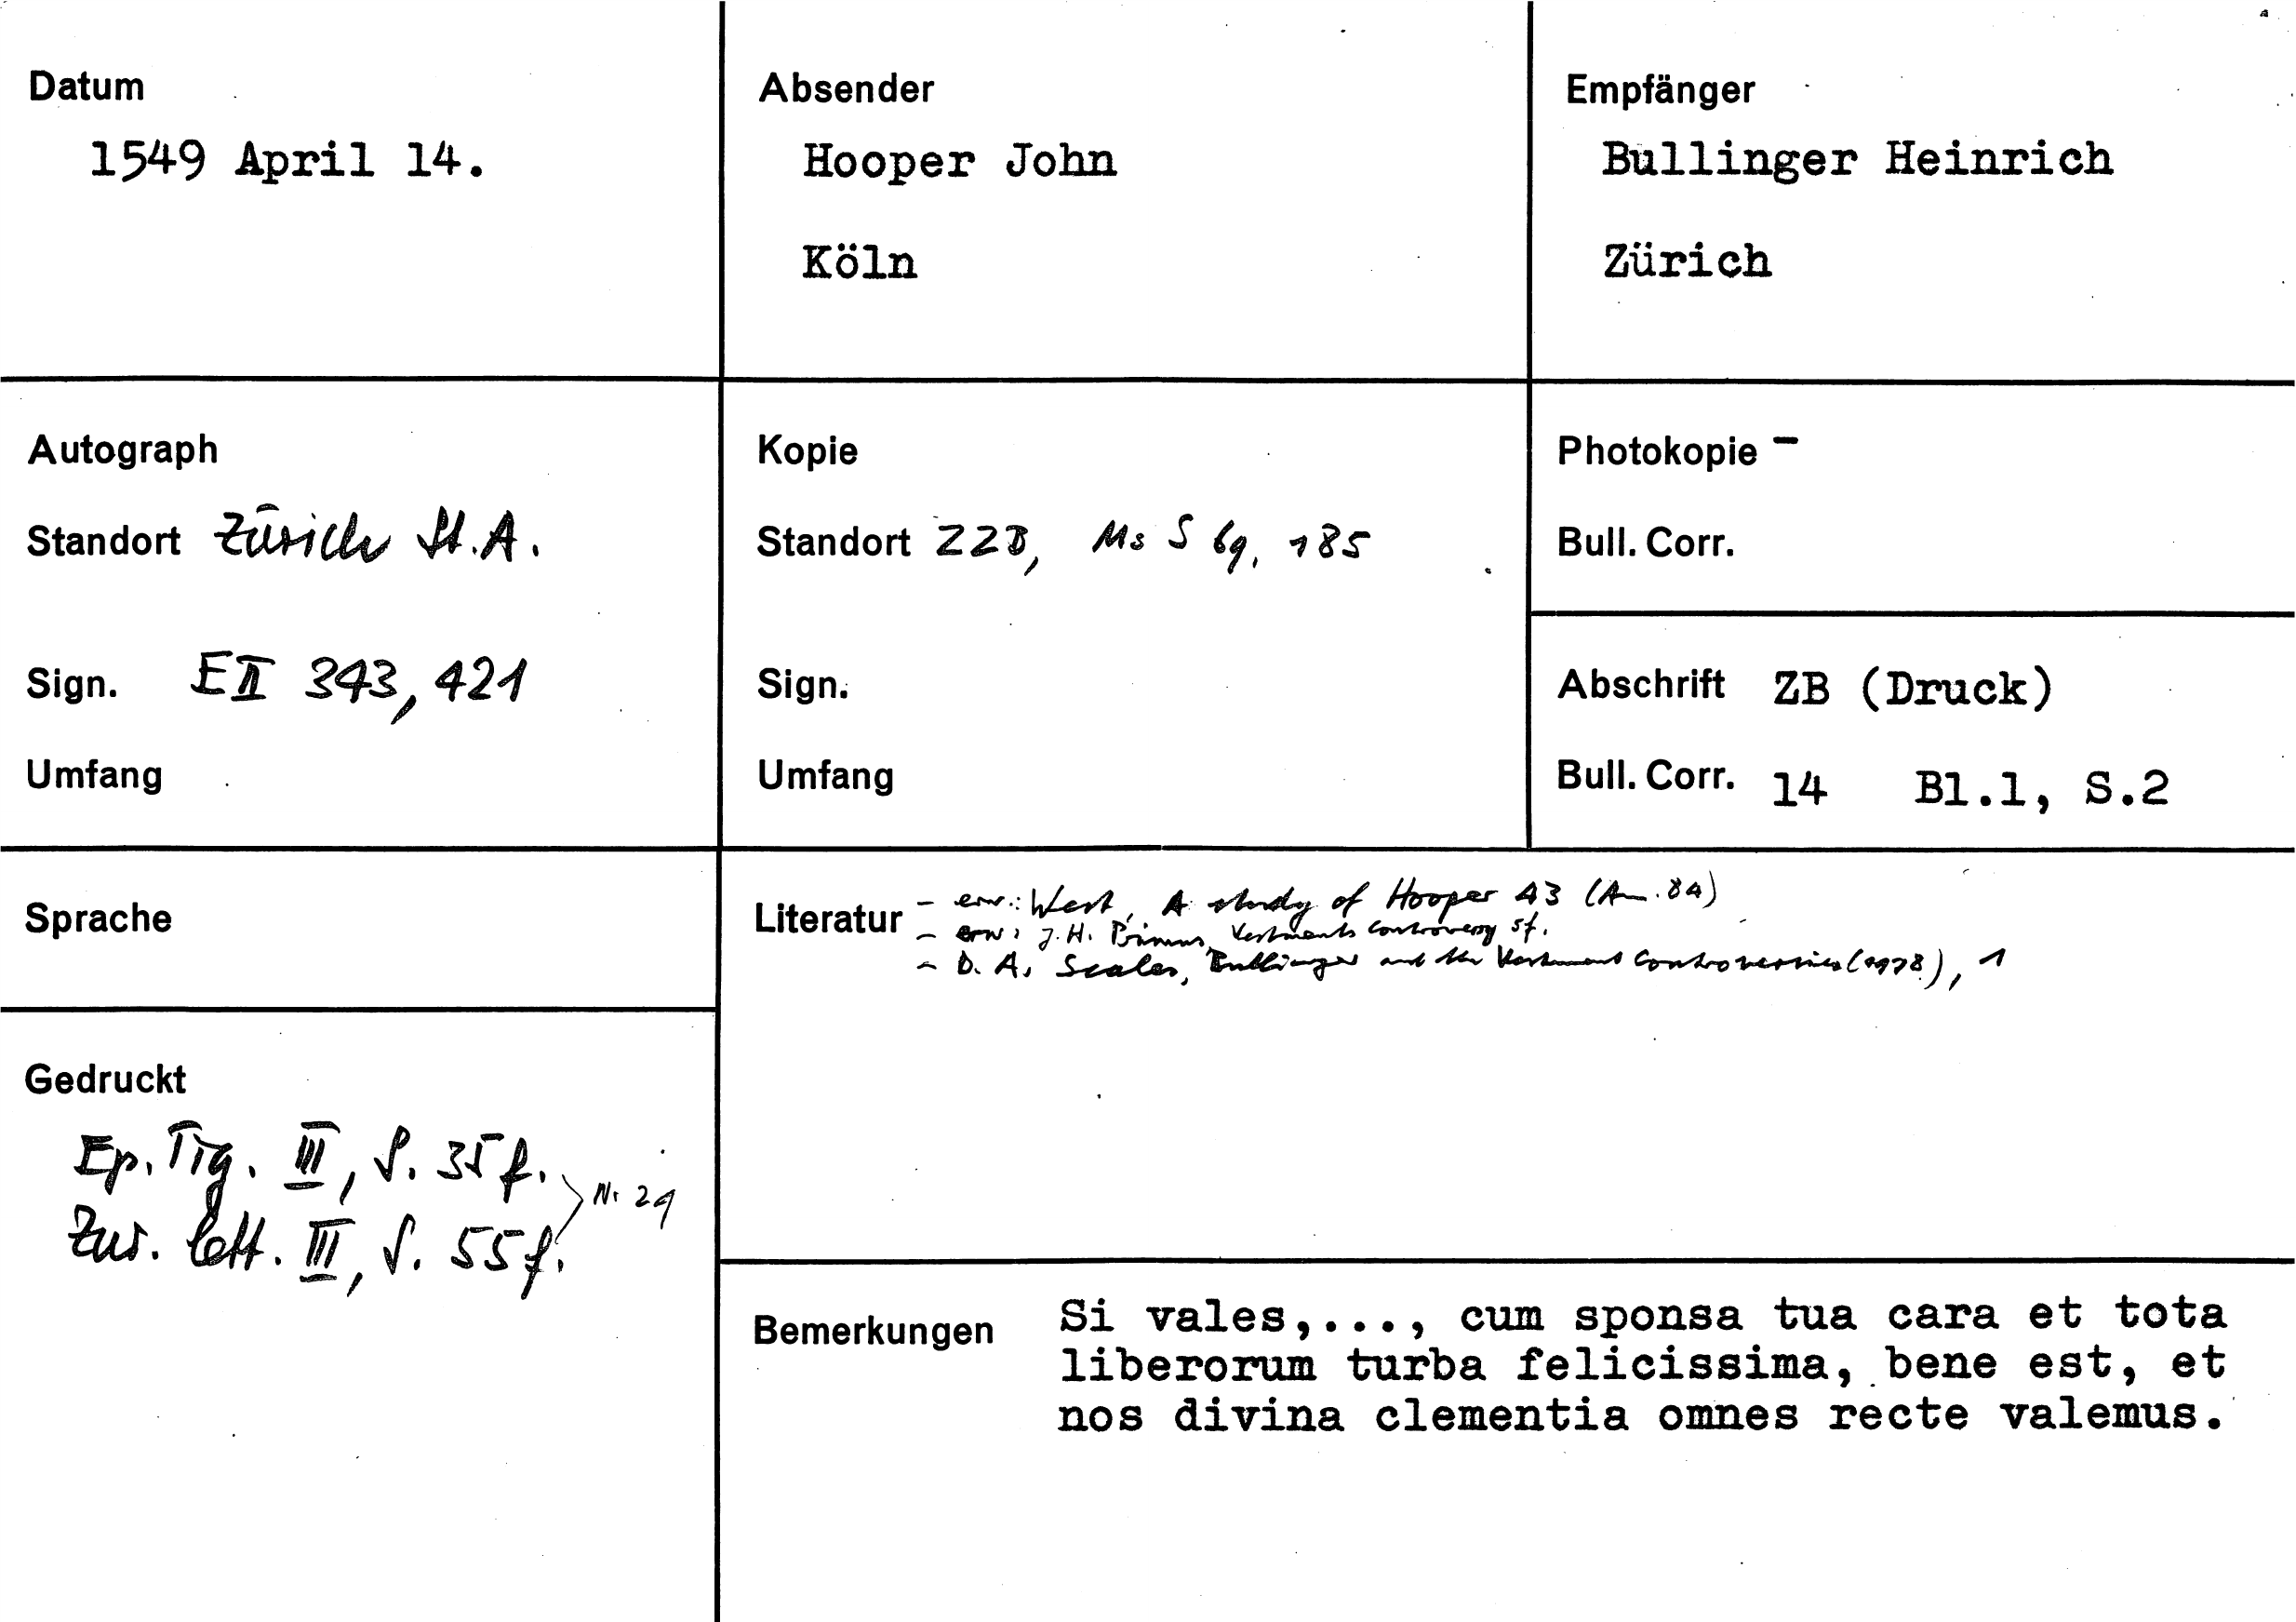 Datum
1549 April 14.
Absender
Hooper John
Köln
Empfänger
Bullinger Heinrich
Zürich
Autograph
Standort Zürich St.A.
Sign. E II 343, 421
Umfang
Kopie
Standort ZZB, Ms S 69, 185
Sign.
Umfang
Photokopie -
Bull. Corr.
Abschrift ZB (Druck)
Bull. Corr. 14 Bl.1, S.2
Sprache
Literatur - erw.: West, A study of Hooper 43 (Anm. 84)
- erw: J.H. Primus, Vestments Controversy 5f.
- D. A. Scales, Bullinger and the Vestment Controversies (1978), 1
Gedruckt
Ep. Tig. III, S. 35 f.
Zur. lett. III, S. 55 f.
Nr 29
Bemerkungen Si vales,..., cum sponsa tua cara et tota
liberorum turba felicissima, bene est, et
nos divina clementia omnes recte valemus.